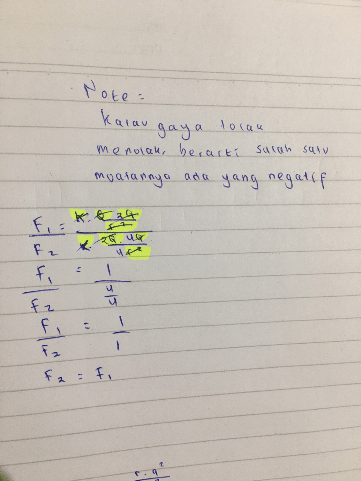 Note =
Kalau gaya tolak
menolak, berarti salah satu
muatannya ada yang negatif
F₁ / F₂ =
F₁ / F₂ = 1 / (4/4)
F₁ / F₂ = 1 / 1
F₂ = F₁